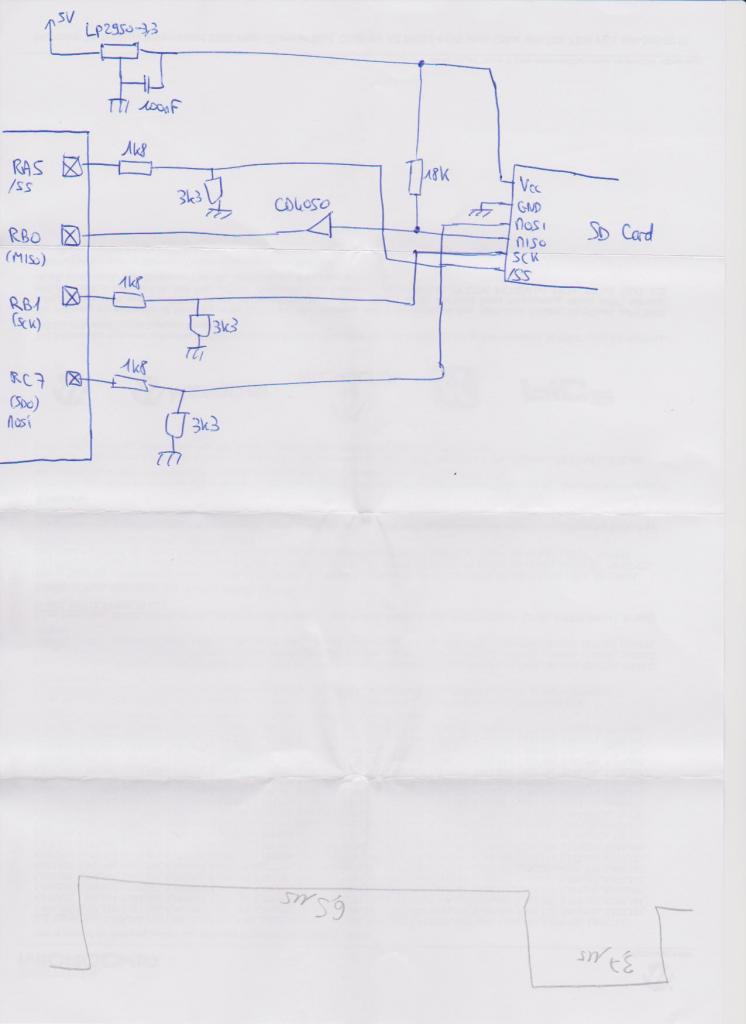 5V
LP2950-3,3
100nF
RA5
/SS
1k8
3k3
18K
CD4050
RB0
(MISO)
RB1
(SCK)
1k8
3k3
RC7
(SDO)
MOSI
1k8
3k3
Vcc
GND
MOSI
MISO
SCK
/SS
SD Card
65 us
37 us